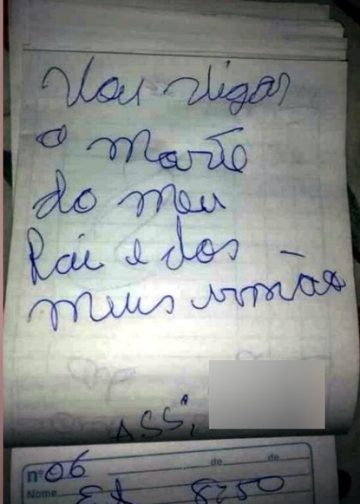 Vou vigar
a morte
do meu
Pai e dos
meus irmãos
ASS,
nº 06 de de
Nome 8250